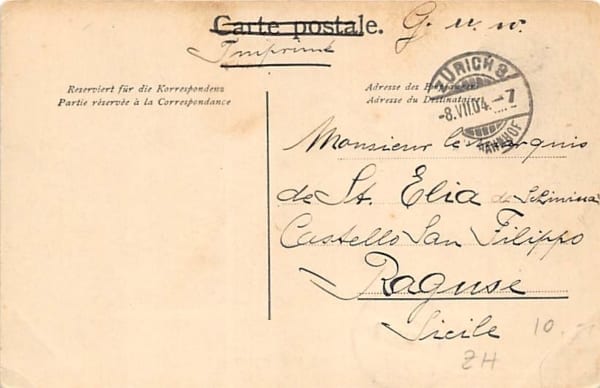 Carte postale. G. u. w.
Imprimé
Reserviert für die Korrespondenz
Partie réservée à la Correspondance
Adresse des Empfängers
Adresse du Destinataire
ZÜRICH 8
-8.VII.04.-7
BAHNHOF
Monsieur le Marquis
de St. Elia de
Castello San Filippo
Raguse
Sicile
10.-
ZH